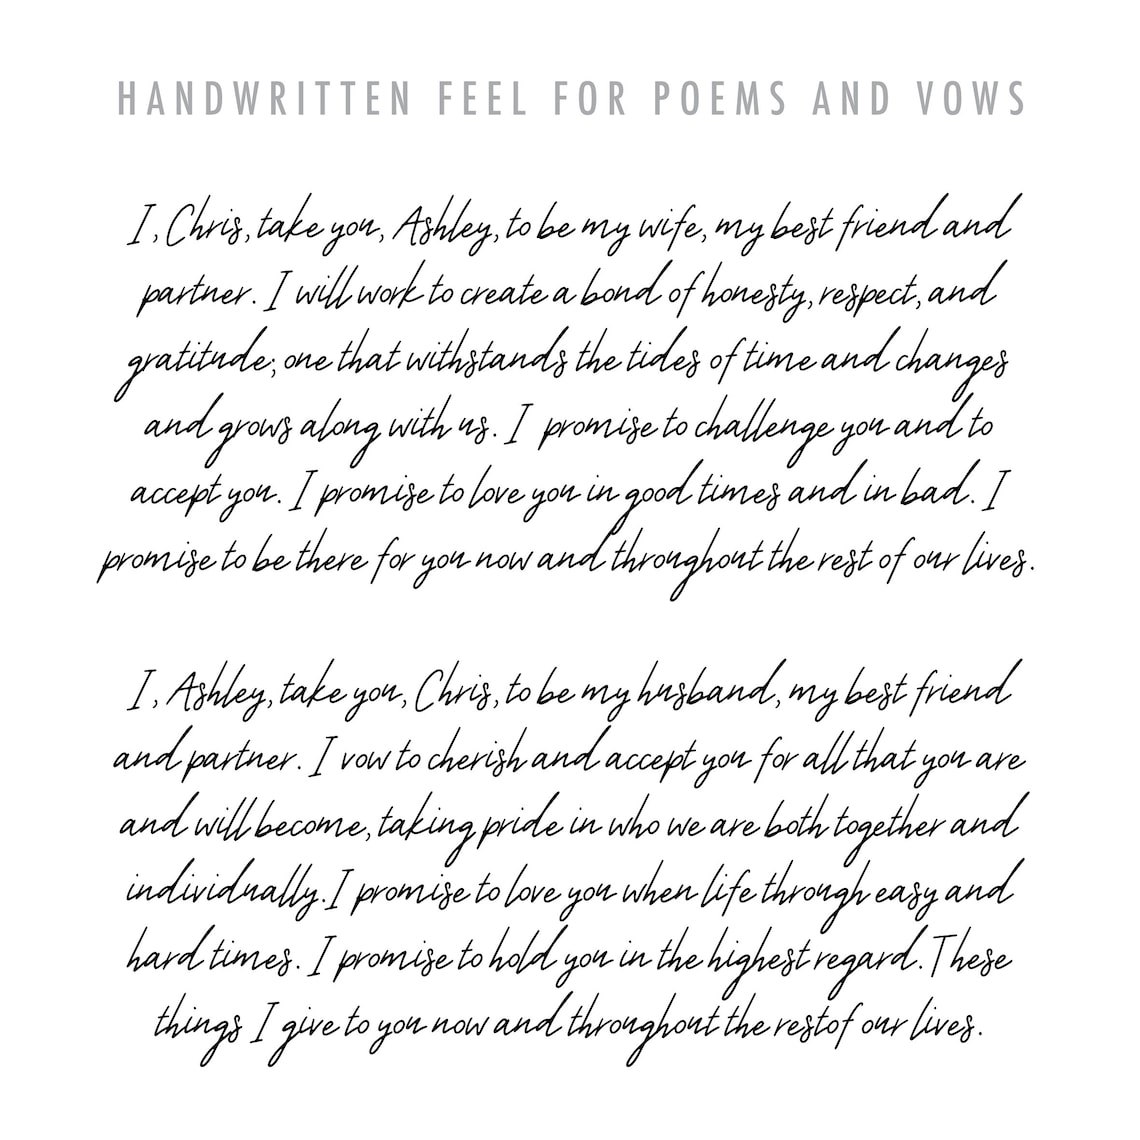 HANDWRITTEN FEEL FOR POEMS AND VOWS
I, Chris, take you, Ashley, to be my wife, my best friend and
partner. I will work to create a bond of honesty, respect, and
gratitude; one that withstands the tides of time and changes
and grows along with us. I promise to challenge you and to
accept you. I promise to love you in good times and in bad. I
promise to be there for you now and throughout the rest of our lives.
I, Ashley, take you, Chris, to be my husband, my best friend
and partner. I vow to cherish and accept you for all that you are
and will become, taking pride in who we are both together and
individually. I promise to love you when life through easy and
hard times. I promise to hold you in the highest regard. These
things I give to you now and throughout the restof our lives.